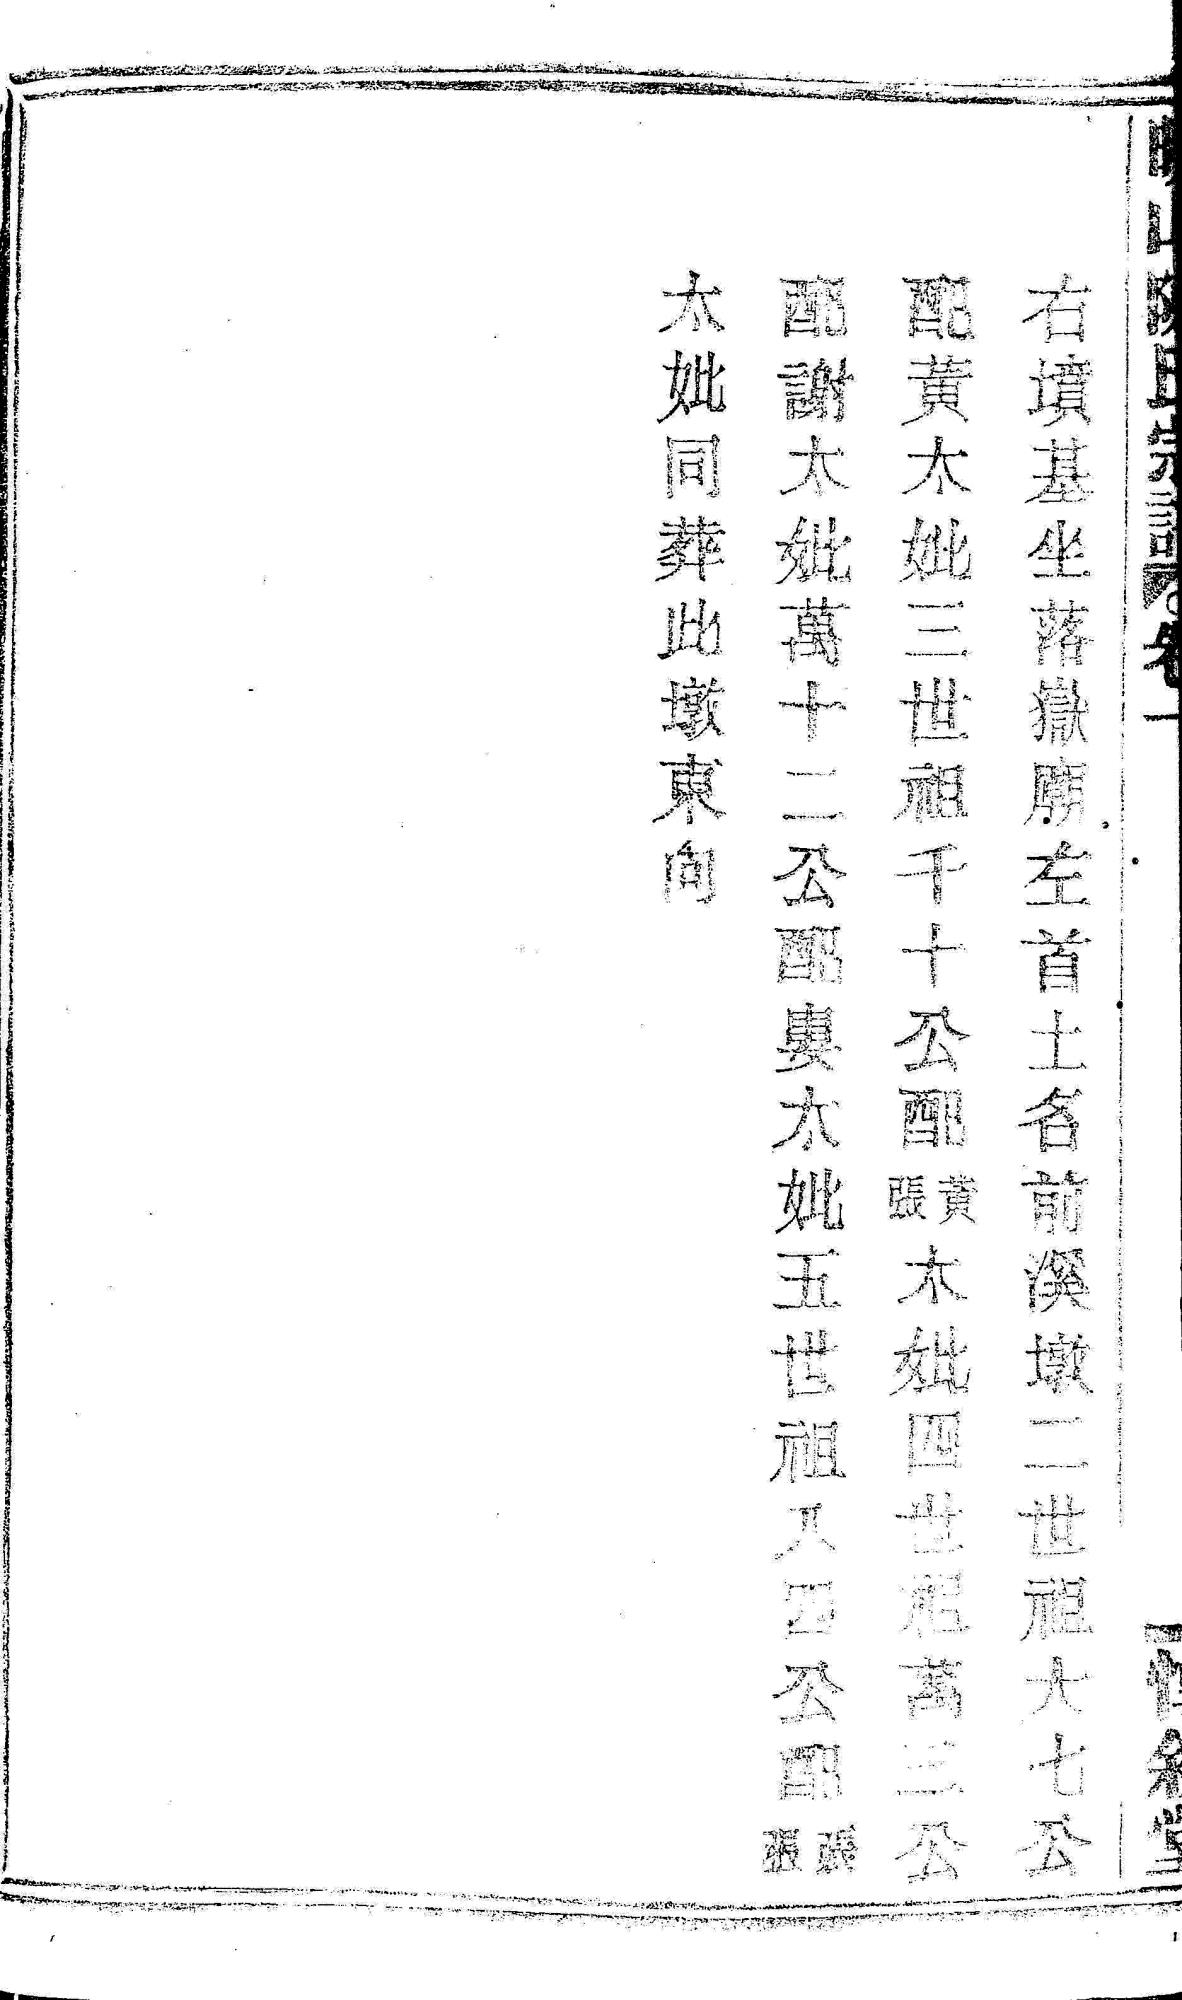 右墳基坐落嶽廟左首土名前溪墩二世祖大七公
配黃太妣三世祖千十公配黃張太妣四世祖萬三公
配謝太妣萬十二公配婁太妣五世祖八四公配張張
太妣同葬此墩東向
山陳氏宗譜 卷一
堂